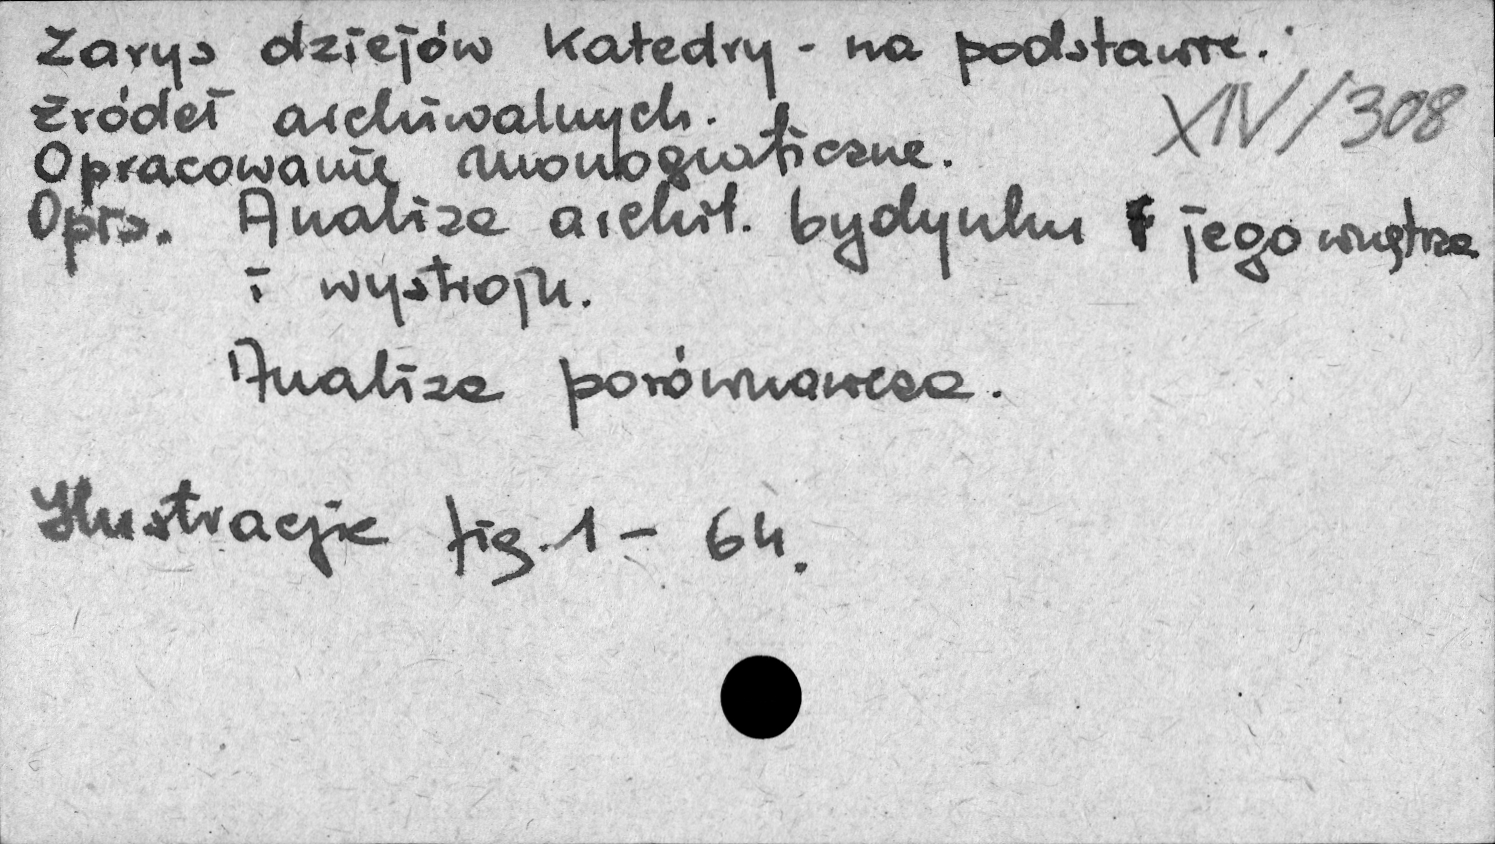 Zarys dziejów Katedry - na podstawie.
źródeł archiwalnych.
XIV/308
Opracowanie monograficzne.
Opis. Analiza archit. bydynku jego wnętrza
i wystroju.
Analiza porównawcza.
Ilustracje fig. 1 - 64.